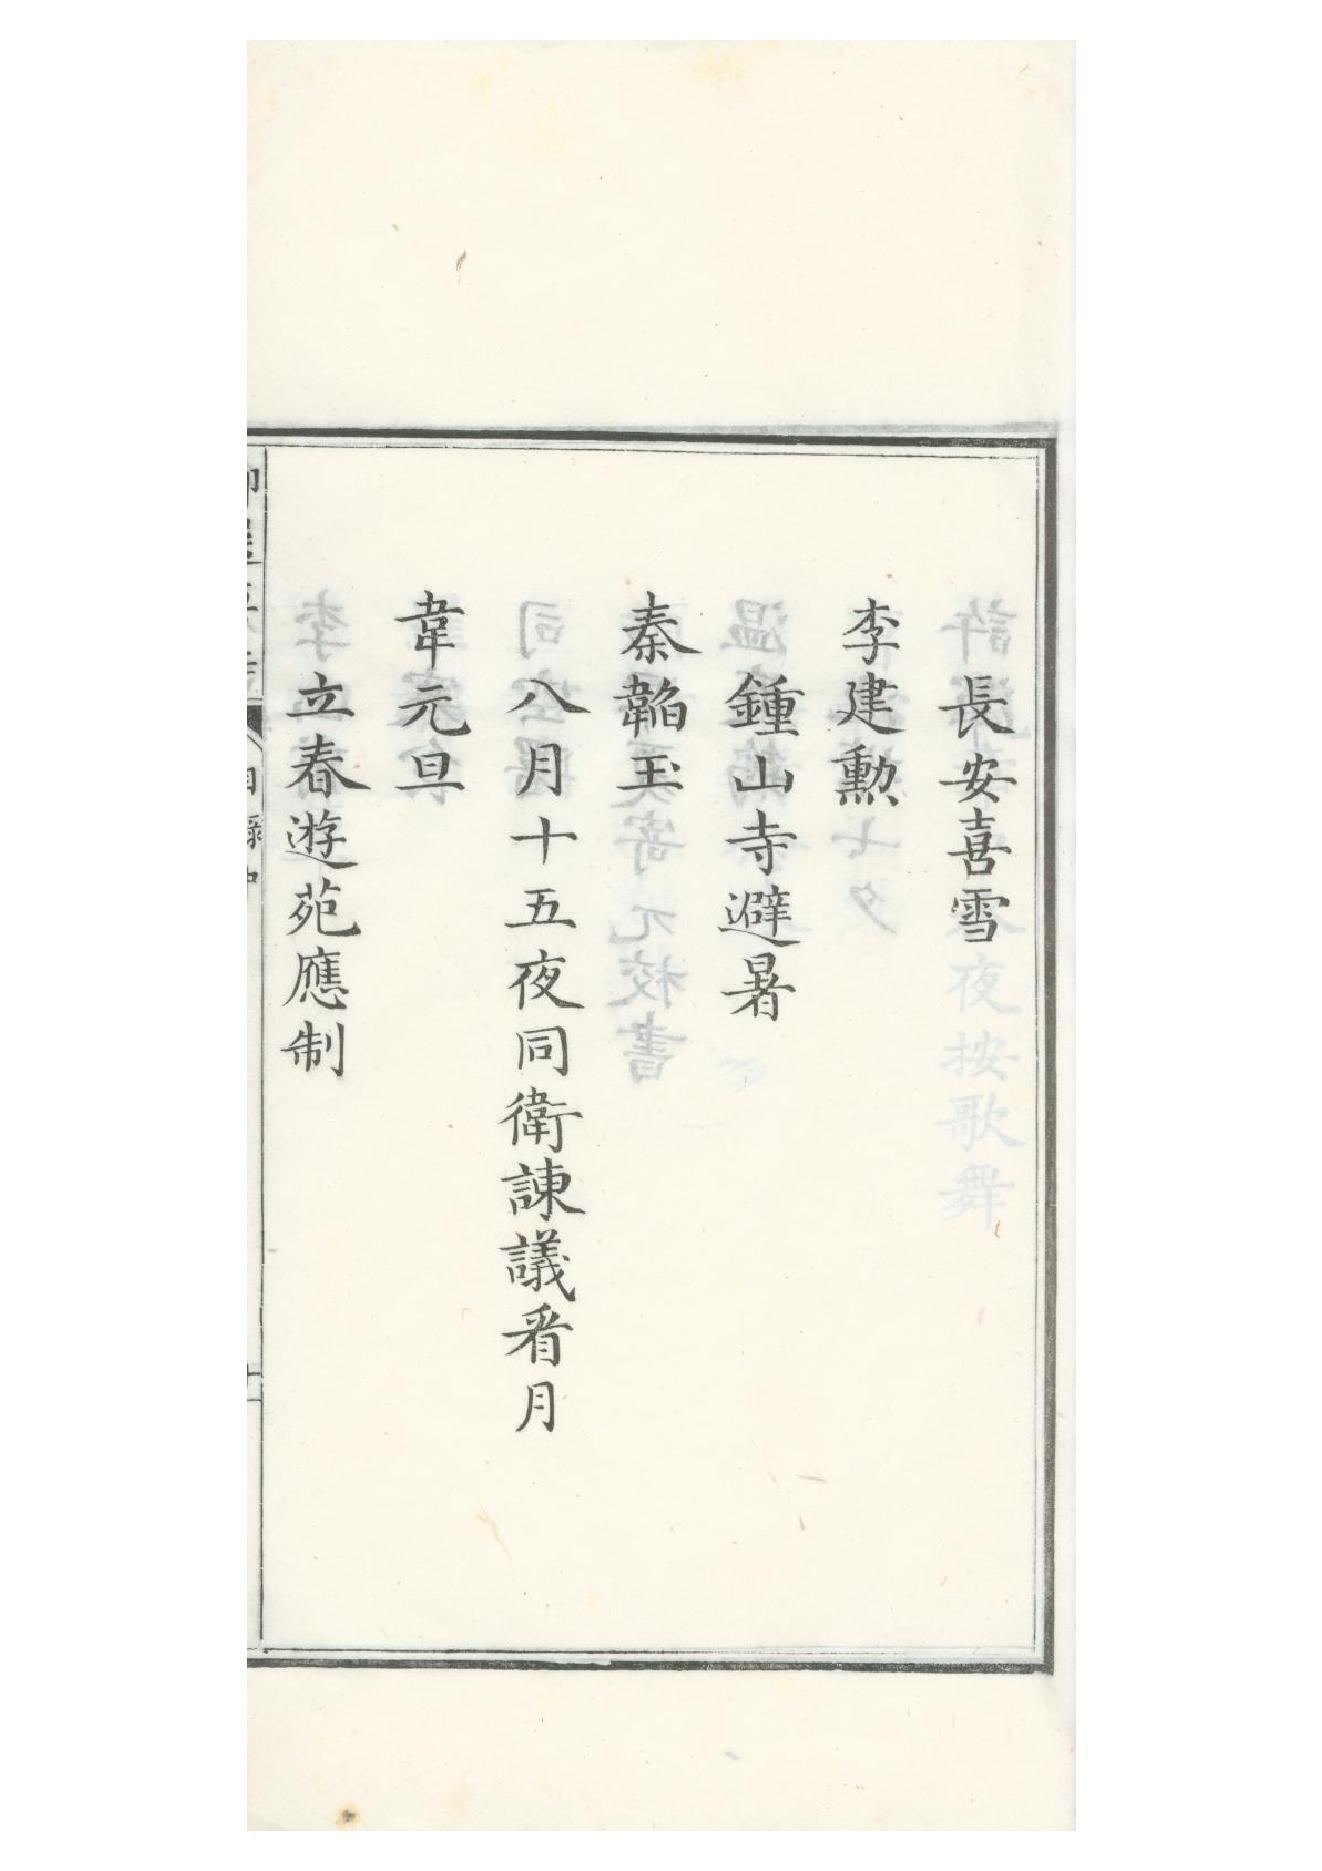 長安喜雪
李建勲
鍾山寺避暑
秦韜玉
八月十五夜同衛諫議看月
韋元旦
立春遊苑應制